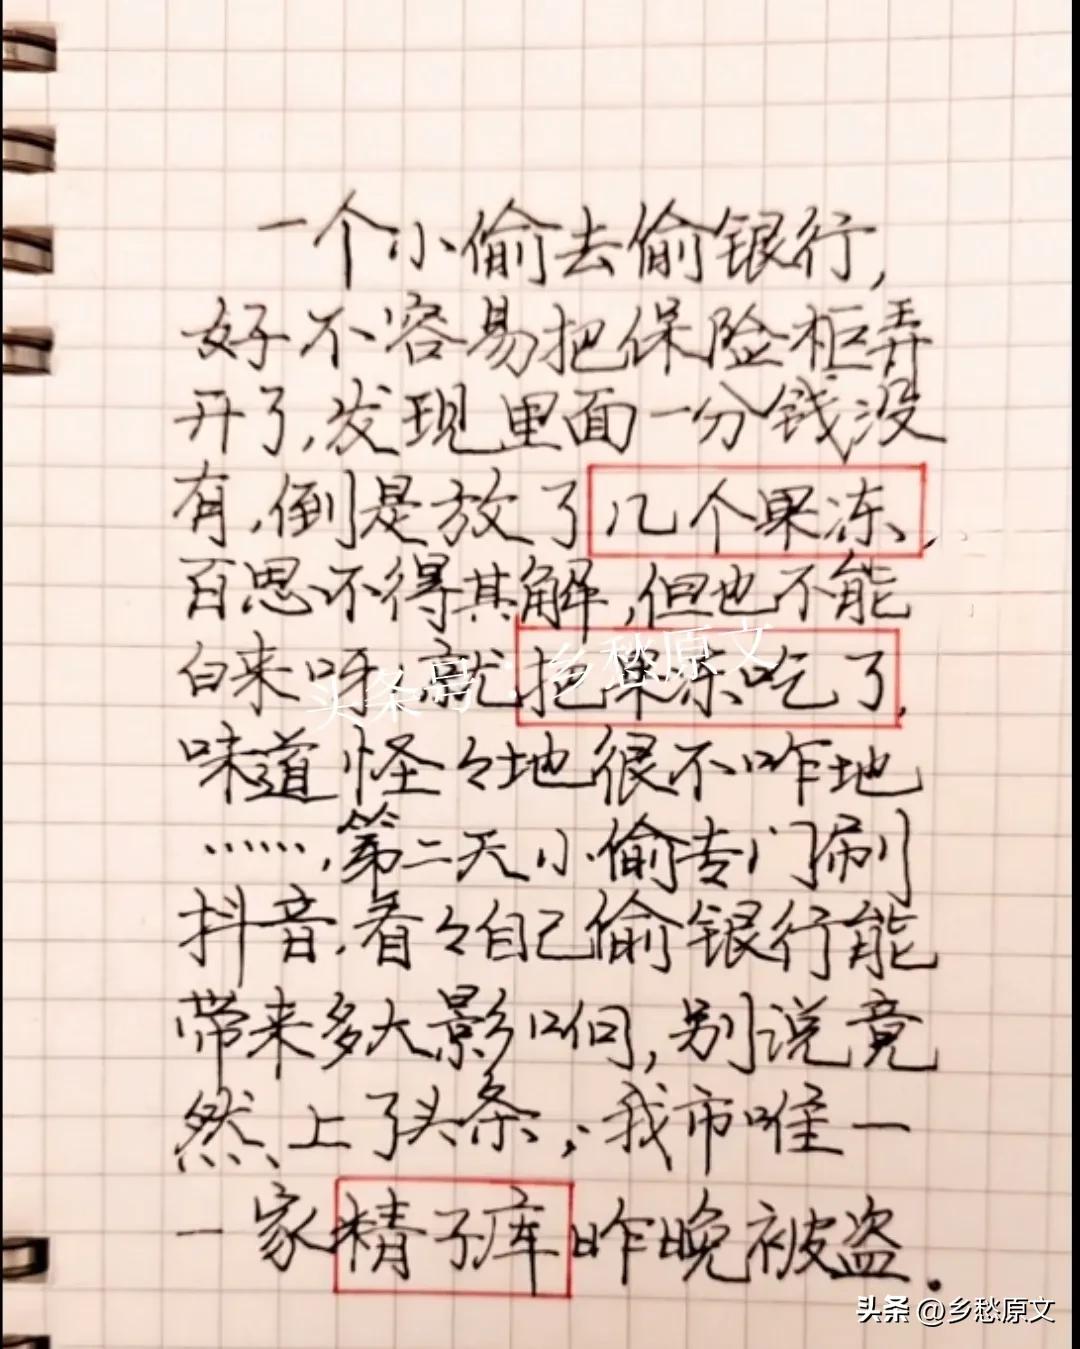 一个小偷去偷银行,
好不容易把保险柜弄
开了,发现里面一分钱没
有,倒是放了几个果冻,
百思不得其解,但也不能
白来呀,就把果冻吃了,
头条号:乡愁原文
味道怪々地很不咋地
……,第二天小偷专门刷
抖音,看々自己偷银行能
带来多大影响,别说竟
然上了头条,:我市唯一
一家精子库昨晚被盗.
头条 @乡愁原文